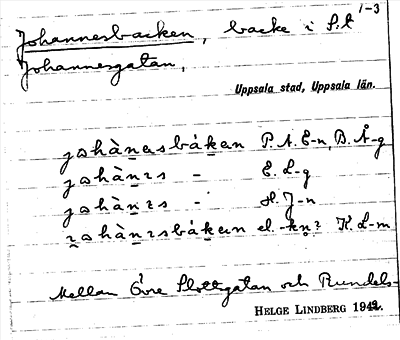 1-3
Johannesbacken, backe i S:t
Johannesgatan,
Uppsala stad, Uppsala län.
johànəsbákən P.A.E-n, B.Å-g
johànɪs - E.L-g
johànɪs - H.J-n
johànɪsbákən el. -kn̥? K.L-m
Mellan Övre Slottsgatan och Rundels-
HELGE LINDBERG 1942.